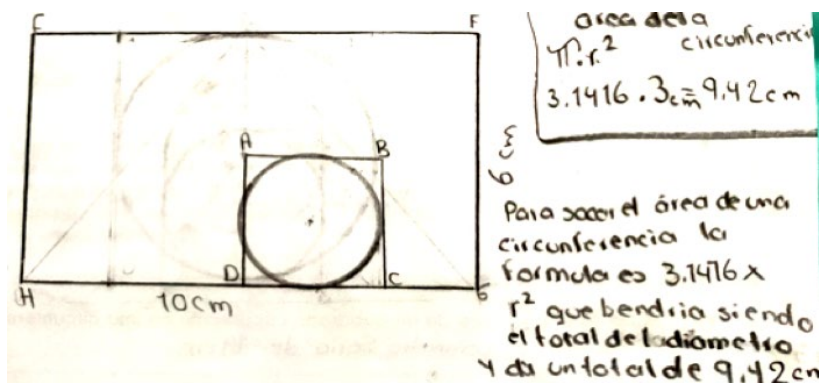 E
F
A
B
D
C
H
G
10cm
6 cm
área dela
circunferencia
π.r²
3.1416 . 3cm = 9.42cm
Para sacar el área de una
circunferencia la
formula es 3.1416 x
r² que bendria siendo
el total de la diametro
y da un total de 9.42 cm